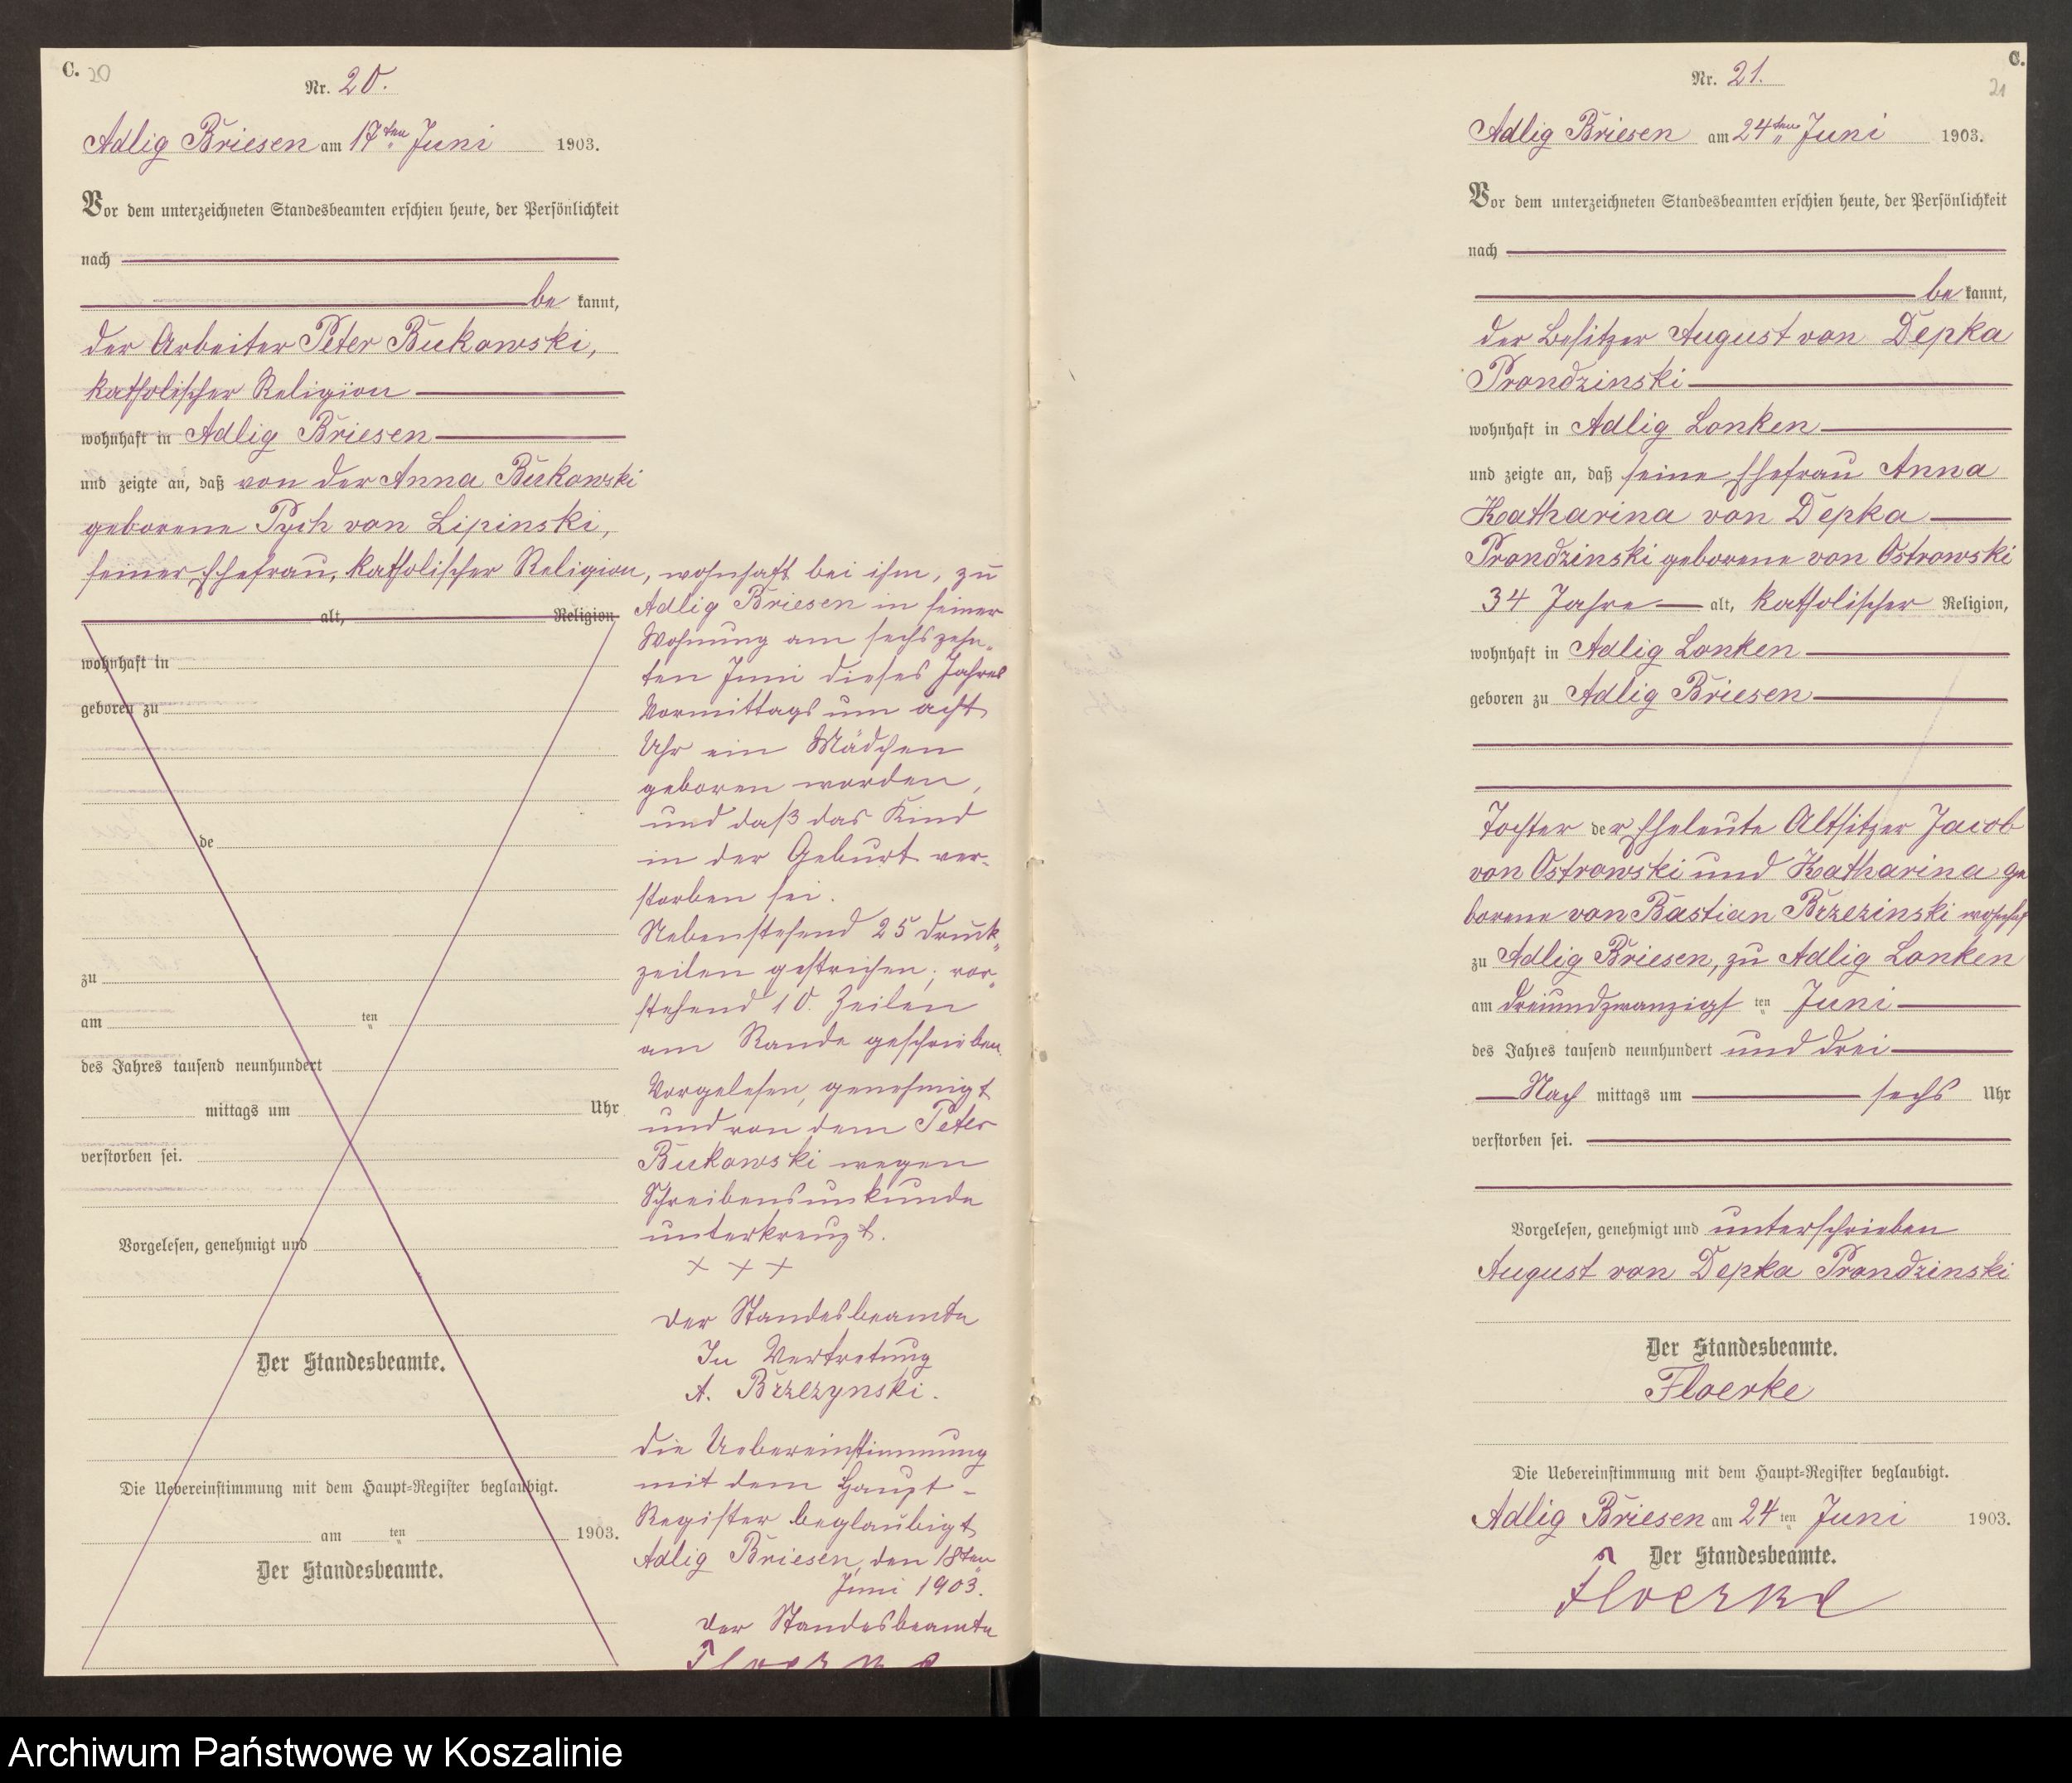 C. 20
Nr. 20.
Adlig Briesen am 17ten Juni 1903.
Vor dem unterzeichneten Standesbeamten erschien heute, der Persönlichkeit
nach
be kannt,
der Arbeiter Peter Bukowski,
katholischer Religion
wohnhaft in Adlig Briesen
und zeigte an, daß von der Anna Bukowski
geborene Pych von Lipinski,
seiner Ehefrau, katholischer Religion, wohnhaft bei ihm, zu
alt, Religion
wohnhaft in
geboren zu
de
zu
am ten
des Jahres tausend neunhundert
mittags um Uhr
verstorben sei.
Vorgelesen, genehmigt und
Der Standesbeamte.
Die Uebereinstimmung mit dem Haupt-Register beglaubigt.
am ten 1903.
Der Standesbeamte.
Adlig Briesen in seiner
Wohnung am sechszehn-
ten Juni dieses Jahres
Vormittags um acht
Uhr ein Mädchen
geboren worden,
und daß das Kind
in der Geburt ver-
storben sei.
Nebenstehend 25 Druck-
zeilen gestrichen, vor-
stehend 10 Zeilen
am Rande geschrieben.
Vorgelesen, genehmigt
und von dem Peter
Bukowski wegen
Schreibensunkunde
unterkreuzt.
+ + +
Der Standesbeamte
In Vertretung
A. Brzezynski.
Die Uebereinstimmung
mit dem Haupt-
Register beglaubigt
Adlig Briesen, den 18ten
Juni 1903.
Der Standesbeamte
Floerke
C.
21
Nr. 21.
Adlig Briesen am 24ten Juni 1903.
Vor dem unterzeichneten Standesbeamten erschien heute, der Persönlichkeit
nach
be kannt,
der Besitzer August von Depka
Prondzinski
wohnhaft in Adlig Lonken
und zeigte an, daß seine Ehefrau Anna
Katharina von Depka
Prondzinski geborene von Ostrowski
34 Jahre alt, katholischer Religion,
wohnhaft in Adlig Lonken
geboren zu Adlig Briesen
Tochter der Eheleute Altsitzer Jacob
von Ostrowski und Katharina ge
borene von Bastian Brzezinski wohnhaft
zu Adlig Briesen, zu Adlig Lonken
am dreiundzwanzigs ten Juni
des Jahres tausend neunhundert und drei
Nach mittags um sechs Uhr
verstorben sei.
Vorgelesen, genehmigt und unterschrieben
August von Depka Prondzinski
Der Standesbeamte.
Floerke
Die Uebereinstimmung mit dem Haupt-Register beglaubigt.
Adlig Briesen am 24 ten Juni 1903.
Der Standesbeamte.
Floerke
Archiwum Państwowe w Koszalinie